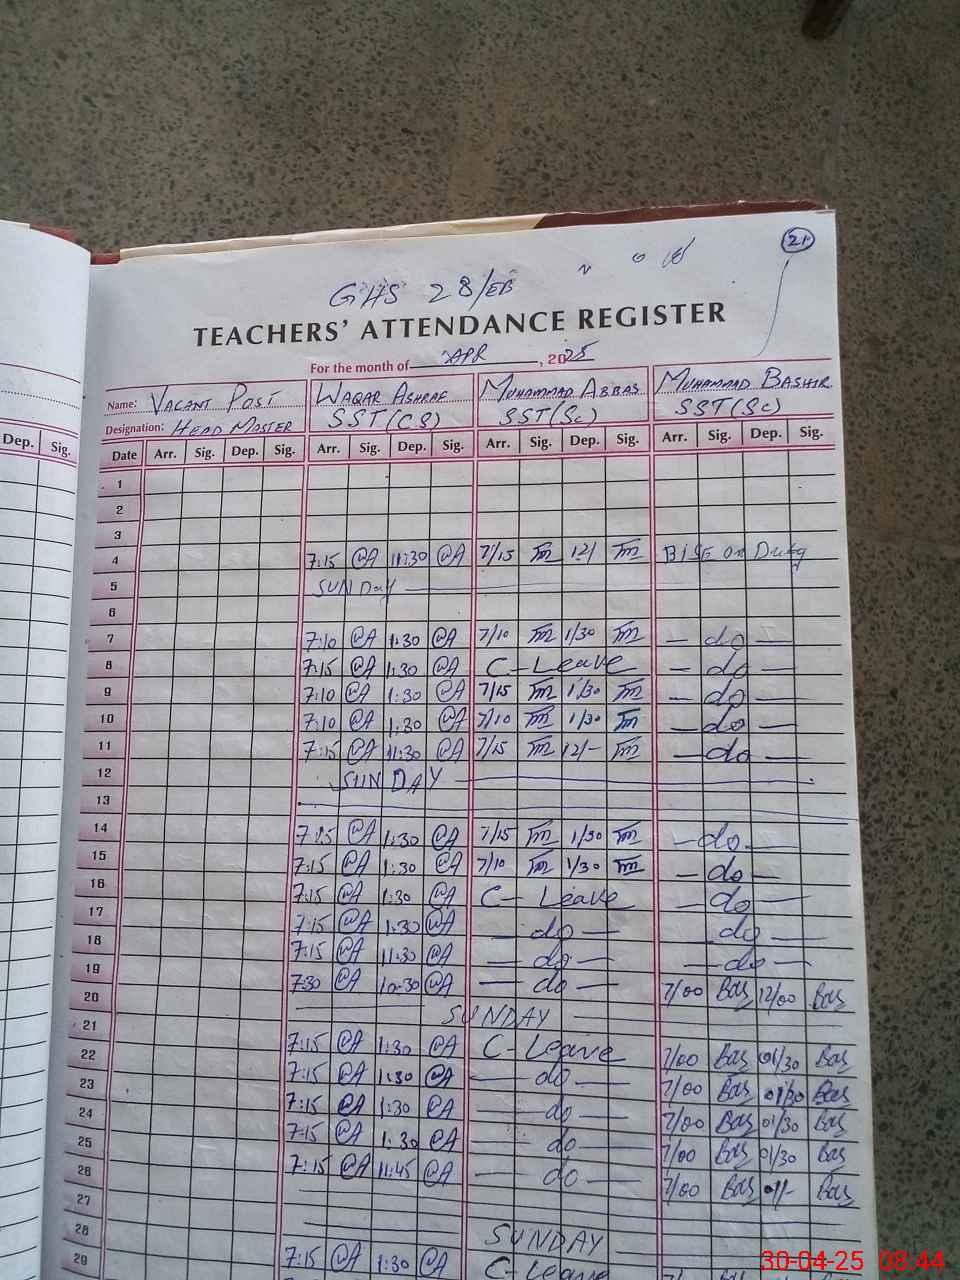 21
GHS 28/EB
TEACHERS' ATTENDANCE REGISTER
For the month of APR, 2025
Name: VACANT POST WAQAR ASHRAF MUHAMMAD ABBAS MUHAMMAD BASHIR
Designation: HEAD MASTER SST(CS) SST(Sc) SST(Sc)
Dep. Sig. Date Arr. Sig. Dep. Sig. Arr. Sig. Dep. Sig. Arr. Sig. Dep. Sig. Arr. Sig. Dep. Sig.
1
2
3
4 7:15 @A 11:30 @A 7/15 12/ BISE on Duty
5 SUNDay
6
7 7:10 @A 1:30 @A 7/10 1/30 — do —
8 7:15 @A 1:30 @A C-Leave — do —
9 7:10 @A 1:30 @A 7/15 1/30 — do —
10 7:10 @A 1:30 @A 7/10 1/30 — do —
11 7:15 @A 11:30 @A 7/15 12/- — do —
12 SUNDAY
13
14 7:15 @A 1:30 @A 7/15 1/30 — do —
15 7:15 @A 1:30 @A 7/10 1/30 — do —
16 7:15 @A 1:30 @A C- Leave — do —
17 7:15 @A 1:30 @A — do — — do —
18 7:15 @A 11:30 @A — do — — do —
19 7:30 @A 10:30 @A — do —
20 7/00 Bas 12/00 Bas
SUNDAY
21
22 7:15 @A 1:30 @A C-Leave 7/00 Bas 01/30 Bas
23 7:15 @A 1:30 @A — do — 7/00 Bas 01/30 Bas
24 7:15 @A 1:30 @A — do — 7/00 Bas 01/30 Bas
25 7:15 @A 1:30 @A — do — 7/00 Bas 01/30 Bas
26 7:15 @A 11:45 @A — do — 7/00 Bas Bas
27
28 SUNDAY
29 7:15 @A 1:30 @A C-Leave
30-04-25 08:44